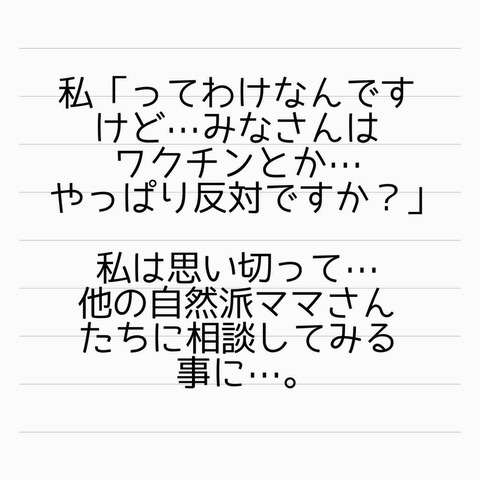 私「ってわけなんです
けど…みなさんは
ワクチンとか…
やっぱり反対ですか？」
私は思い切って…
他の自然派ママさん
たちに相談してみる
事に…。